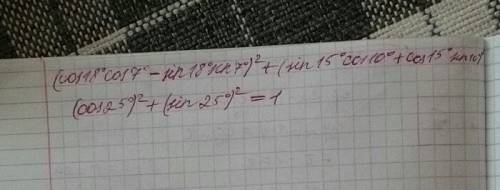 (cos18°cos7° - sin18°sin7°)² + (sin15°cos10° + cos15°sin10°)
(cos25°)² + (sin25°)² = 1